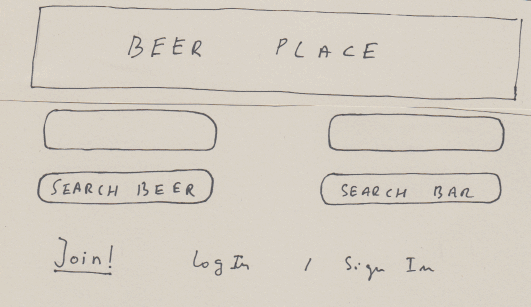 BEER PLACE
SEARCH BEER SEARCH BAR
Join! Log In / Sign In